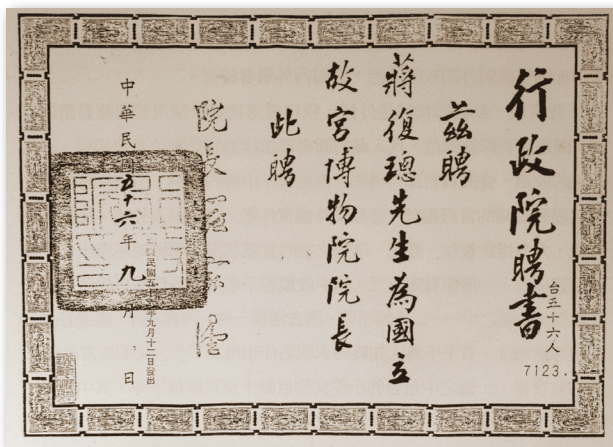 行政院聘書
台五十六人
7123.
茲聘
蔣復璁先生為國立
故宮博物院院長
此聘
院長嚴家淦
中華民國五十六年九月 日
年九月十二日發出